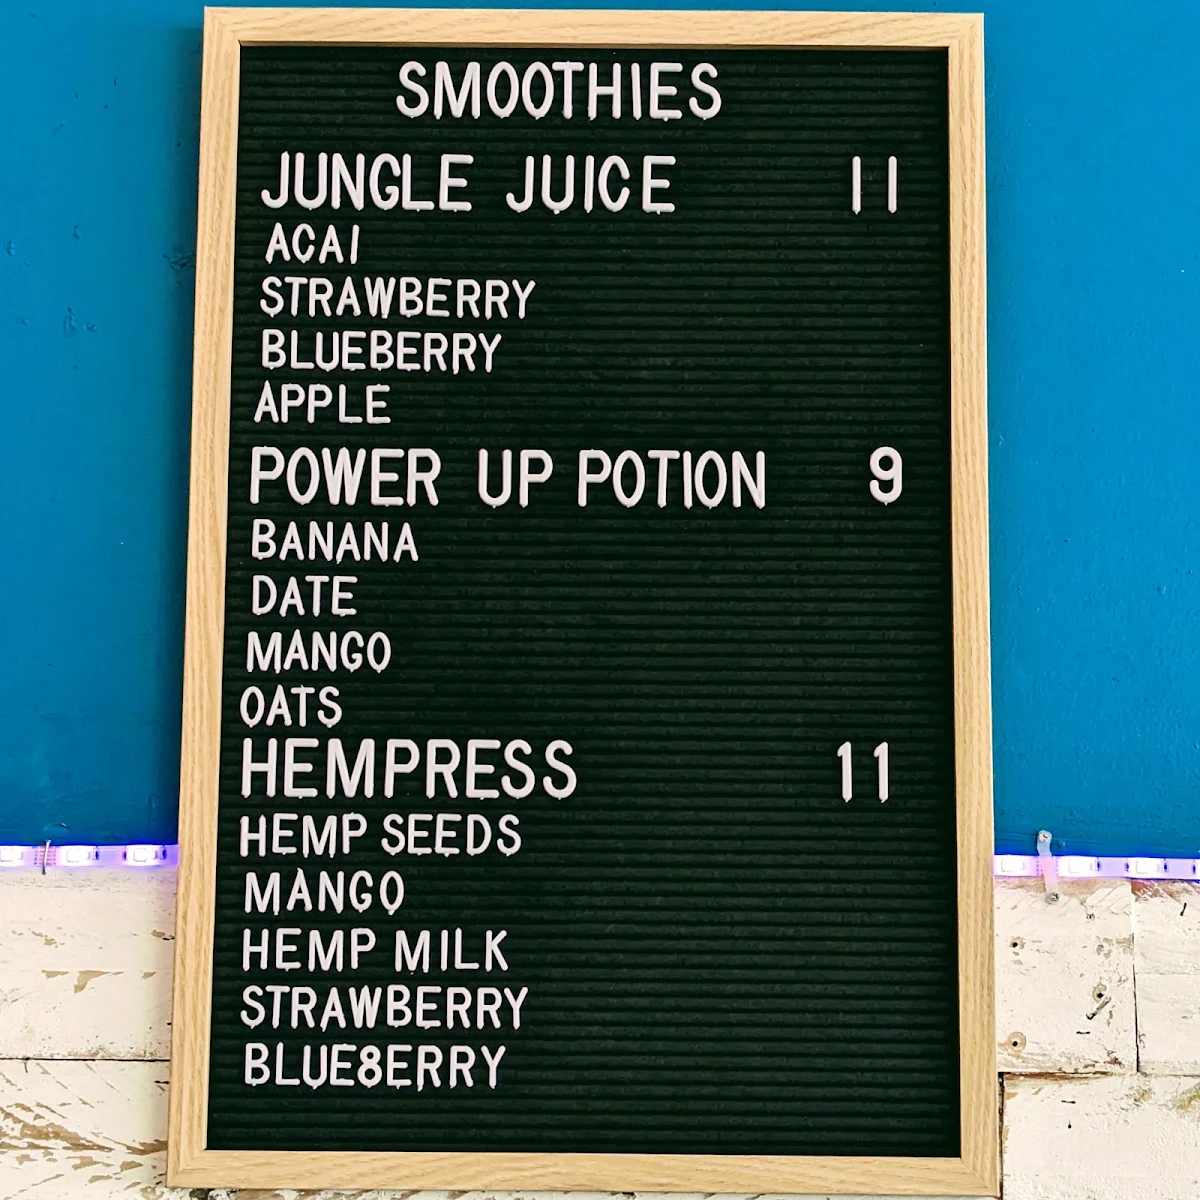 SMOOTHIES
JUNGLE JUICE 11
ACAI
STRAWBERRY
BLUEBERRY
APPLE
POWER UP POTION 9
BANANA
DATE
MANGO
OATS
HEMPRESS 11
HEMP SEEDS
MANGO
HEMP MILK
STRAWBERRY
BLUE8ERRY